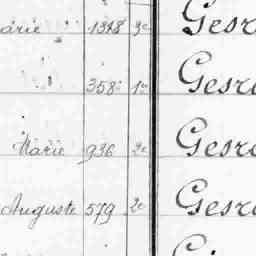 arie 1318 3e Gesr
358 1e Gesr
Marie 936 2e Gesr
Auguste 579 2e Gesr